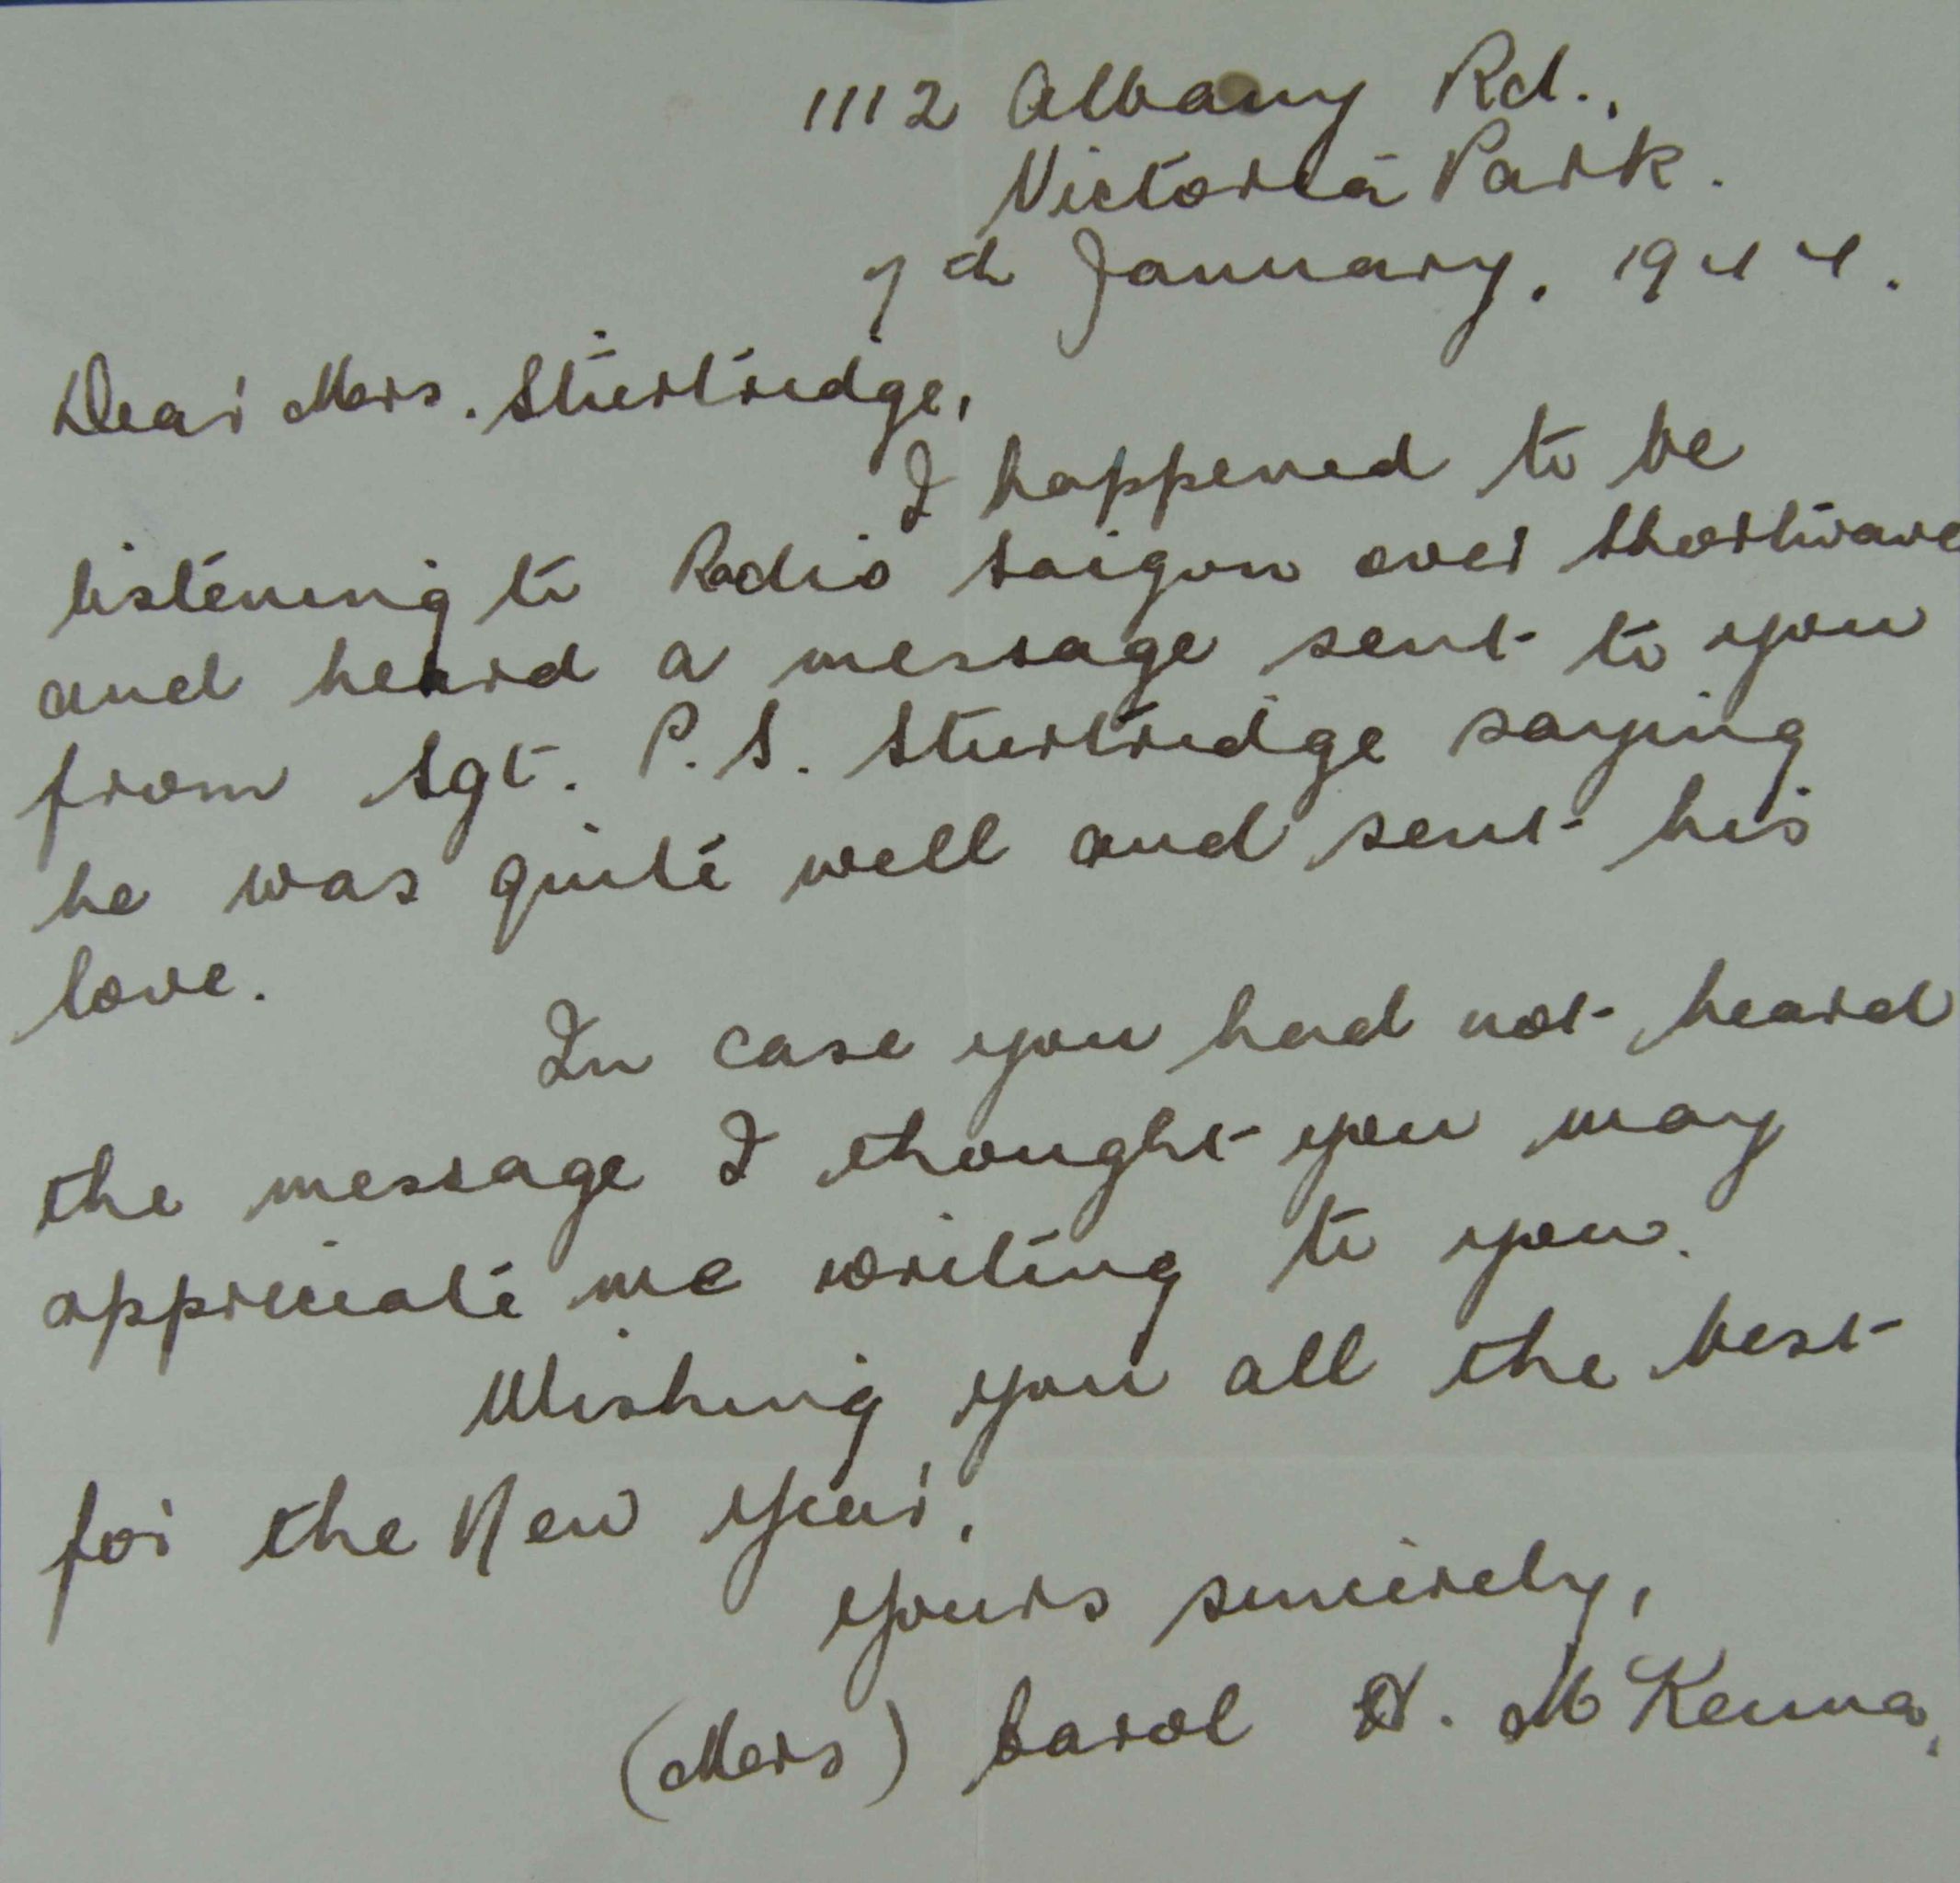 1112 Albany Rd.,
Victoria Park.
7th January. 1944.
Dear Mrs. Sturtridge,
I happened to be
listening to Radio Saigon over Shortwave
and heard a message sent to you
from Sgt. P. S. Sturtridge saying
he was quite well and sent his
love.
In case you had not heard
the message I thought you may
appreciate me writing to you.
Wishing you all the best
for the New Year,
Yours sincerely,
(Mrs) Carol . McKenna.